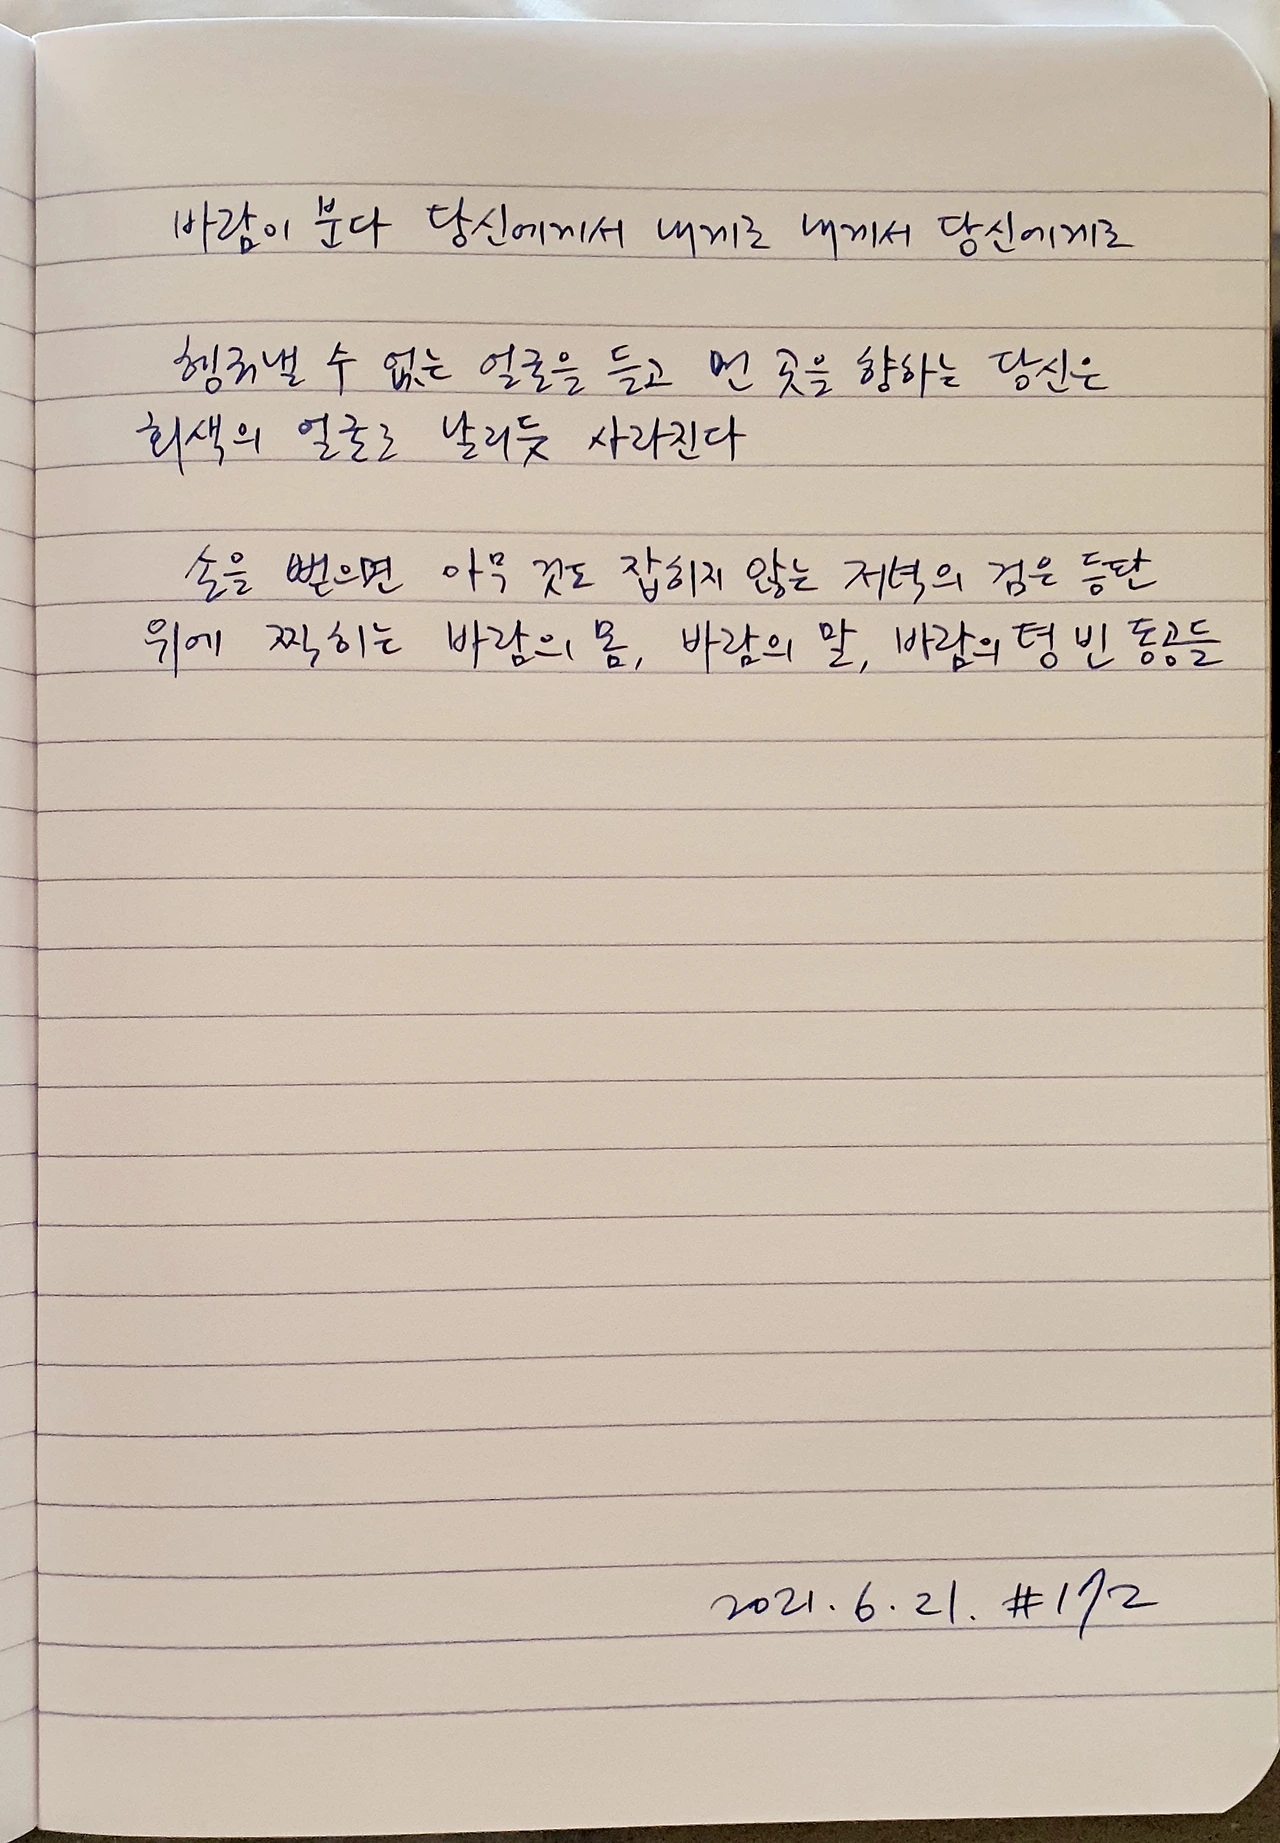 바람이 분다 당신에게서 내게로 내게서 당신에게로
헹궈낼 수 없는 얼굴을 들고 먼 곳을 향하는 당신은
회색의 얼굴로 날리듯 사라진다
손을 뻗으면 아무 것도 잡히지 않는 저녁의 검은 등판
위에 찍히는 바람의 몸, 바람의 말, 바람의 텅 빈 동공들
2021. 6. 21. #172